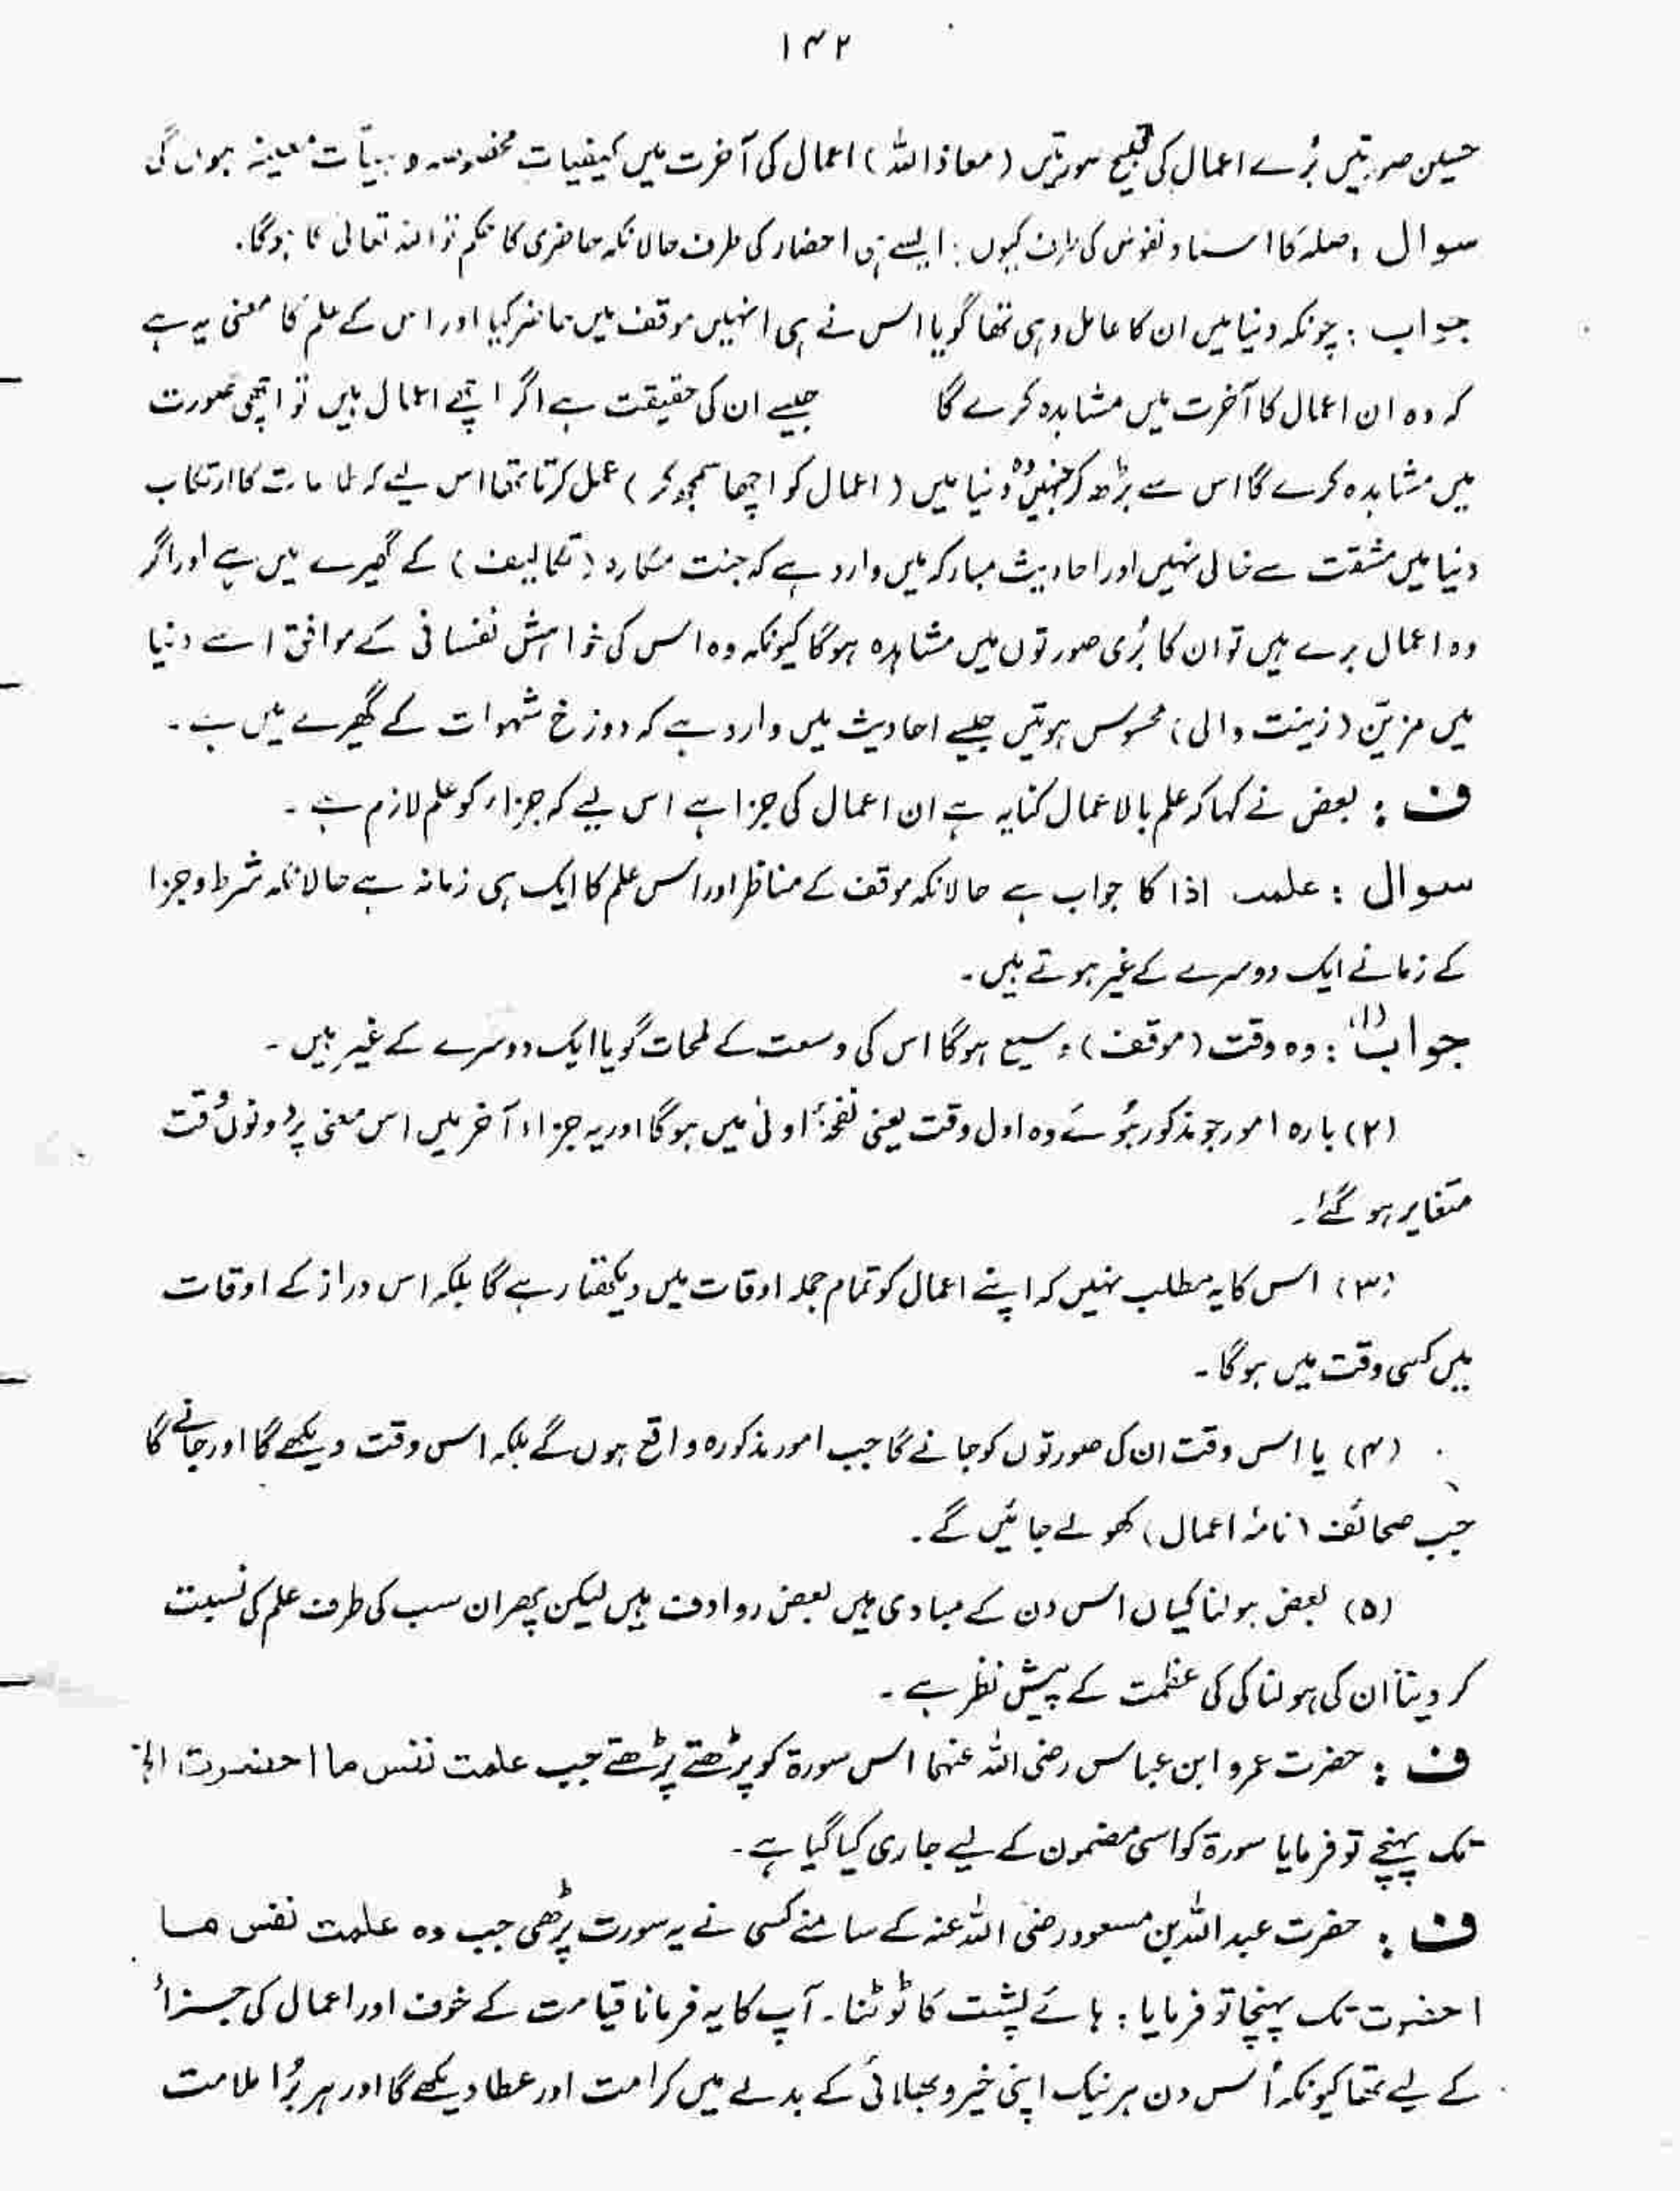 ۱۴۲
حسین صورتیں بُرے اعمال کی قبیح صورتیں (معاذ اللہ) اعمال کی آخرت میں کیفیات مخصوصہ و ہیأت معینہ ہوں گی
سوال : صلہ کا اسناد نفوس کی طرف کیوں : ایسے ہی احضار کی طرف حالانکہ حاضری کا حکم تو اللہ تعالیٰ کا ہوگا۔
جواب : چونکہ دنیا میں ان کا عامل وہی تھا گویا اس نے ہی انہیں موقف میں حاضر کیا اور اس کے علم کا معنی یہ ہے
کہ وہ ان اعمال کا آخرت میں مشاہدہ کرے گا جیسے ان کی حقیقت ہے اگر اچھے اعمال ہیں تو اچھی صورت
میں مشاہدہ کرے گا اس سے بڑھ کر جنہیں وہ دنیا میں (اعمال کو اچھا سمجھ کر) عمل کرتا تھا اس لیے کہ طاعات کا ارتکاب
دنیا میں مشقت سے خالی نہیں اور احادیث مبارکہ میں وارد ہے کہ جنت مکارہ (تکالیف) کے گھیرے میں ہے اور اگر
وہ اعمال برے ہیں تو ان کا بُری صورتوں میں مشاہدہ ہوگا کیونکہ وہ اس کی خواہش نفسانی کے موافق اسے دنیا
میں مزیّن (زینت والی) محسوس ہوتیں جیسے احادیث میں وارد ہے کہ دوزخ شہوات کے گھیرے میں ہے ۔
ف : بعض نے کہا کہ علم بالاعمال کنایہ ہے ان اعمال کی جزا ہے اس لیے کہ جزاء کو علم لازم ہے ۔
سوال : علمت اذا کا جواب ہے حالانکہ موقف کے مناظر اور اس علم کا ایک ہی زمانہ ہے حالانکہ شرط و جزا
کے زمانے ایک دوسرے کے غیر ہوتے ہیں ۔
جواب (۱) : وہ وقت (موقف) وسیع ہوگا اس کی وسعت کے لمحات گویا ایک دوسرے کے غیر ہیں ۔
(۲) بارہ امور جو مذکور ہُوئے وہ اول وقت یعنی نفخۂ اولیٰ میں ہوگا اور یہ جزاء آخر میں اس معنی پر دونوں وقت
متغایر ہو گئے ۔
(۳) اس کا یہ مطلب نہیں کہ اپنے اعمال کو تمام جملہ اوقات میں دیکھتا رہے گا بلکہ اس دراز کے اوقات
میں کسی وقت میں ہوگا ۔
(۴) یا اس وقت ان کی صورتوں کو جانے گا جب امور مذکورہ واقع ہوں گے بلکہ اس وقت دیکھے گا اور جانے گا
جب صحائف (نامۂ اعمال) کھولے جائیں گے ۔
(۵) بعض ہولناکیاں اس دن کے مبادی ہیں بعض روادف ہیں لیکن پھر ان سب کی طرف علم کی نسبت
کر دینا ان کی ہولناکی کی عظمت کے پیش نظر ہے ۔
ف : حضرت عمر و ابن عباس رضی اللہ عنہما اس سورۃ کو پڑھتے پڑھتے جب علمت نفس ما احضرت الخ
تک پہنچے تو فرمایا سورۃ کو اسی مضمون کے لیے جاری کیا گیا ہے ۔
ف : حضرت عبد اللہ بن مسعود رضی اللہ عنہ کے سامنے کسی نے یہ سورت پڑھی جب وہ علمت نفس ما
احضرت تک پہنچا تو فرمایا : ہائے پشت کا ٹوٹنا ۔ آپ کا یہ فرمانا قیامت کے خوف اور اعمال کی جزاء
کے لیے تھا کیونکہ اُس دن ہر نیک اپنی خیر و بھلائی کے بدلے میں کرامت اور عطا دیکھے گا اور ہر بُرا ملامت